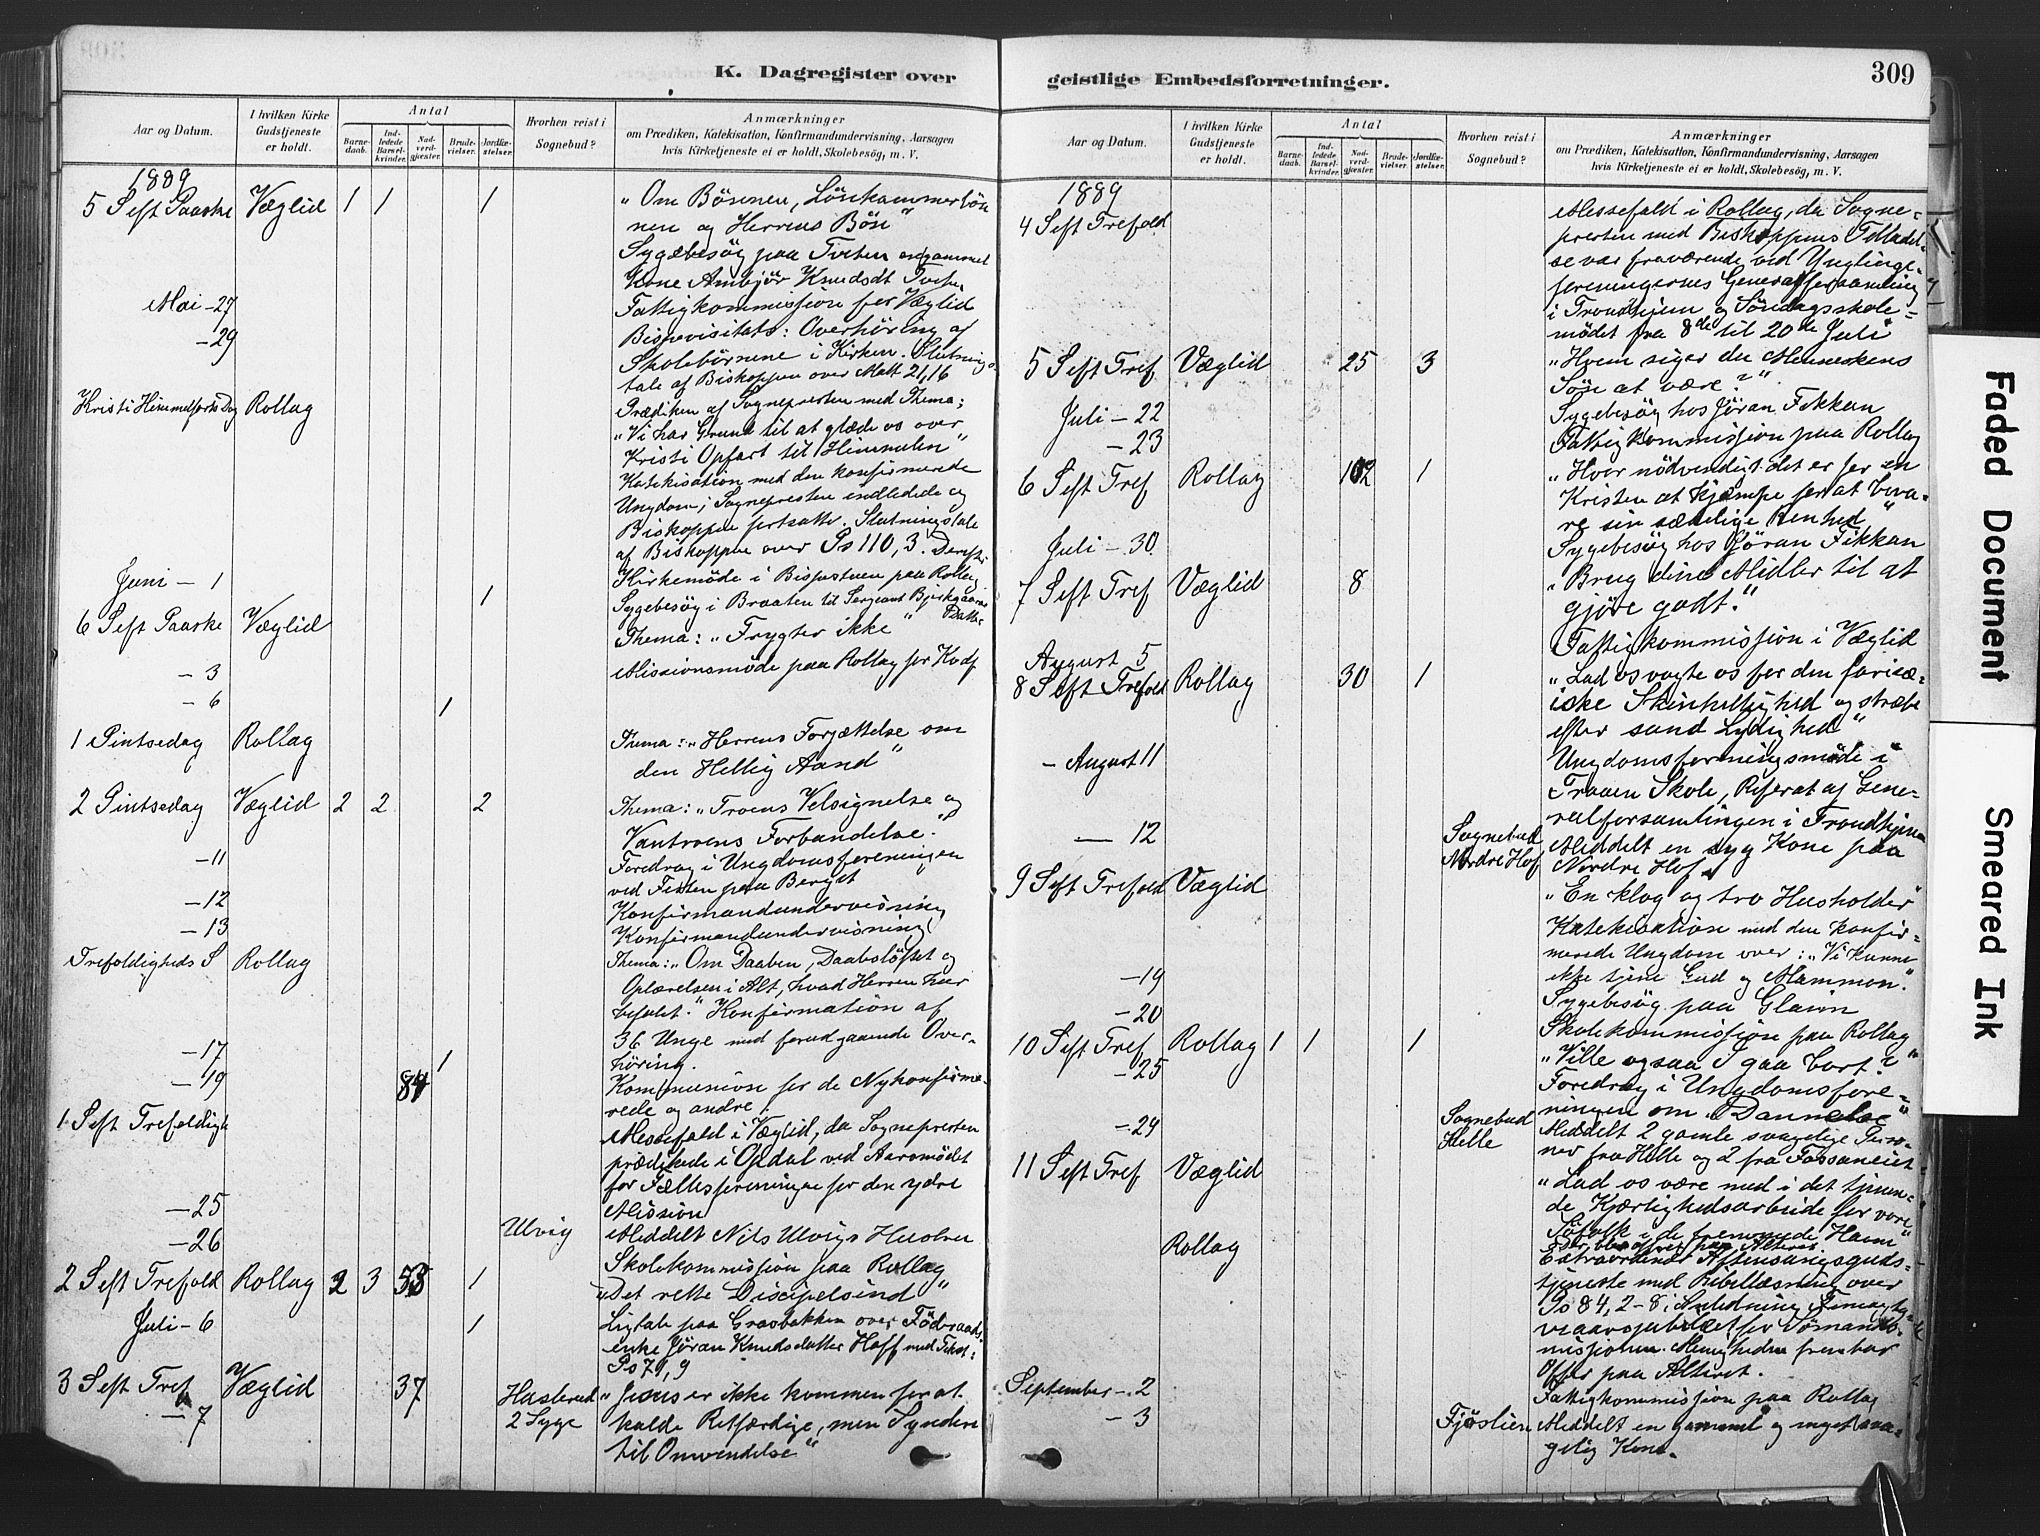 K. Dagregister over
Aar og Datum.
I hvilken Kirke Gudstjeneste er holdt.
Antal
Barne-daab.
Ind-ledede Barsel-kvinder.
Nad-verd-gjester.
Brude-vielser.
Jordfæ-stelser.
Hvorhen reist i Sognebud?
Anmærkninger
om Prædiken, Katekisation, Konfirmandundervisning, Aarsagen
hvis Kirketjeneste ei er holdt, Skolebesøg, m. V.
1889
5 S eft Paaske Væglid 1 1 1 "Om Bönnen, Lönkammerbön
nen og Herrens Bön"
Sygebesög paa Tveten en gammel
Kone Ambjör Knudsdt Tveten
Mai - 27 Fattigkommission for Væglid
- 29 Bispevisitats: Overhöring af
Skolebörnene i Kirken. Slutnings-
tale af Biskoppen over Matt 21,16
Kristi Himmelfarts Dag Rollag Prædiken af Sognepresten med Thema;
"Vi har Grund til at glæde os over
Kristi Opfart til Himmelen"
Katekisation med den konfirmerede
Ungdom; Sognepresten indledede og
Biskoppen fortsatte. Slutningstale
af Biskoppen over Ps 110, 3. Derefter
Kirkemöde i Bispestuen paa Rollag
Juni - 1 1 Sygebesög i Braaten til Sergeant Bjerkgaarens Datter
6 S eft Paaske Væglid Thema: "Frygter ikke"
- 3 Missionsmöde paa Rollag for
- 6 1
1 Pintsedag Rollag Thema: "Herrens Forjættelse om
den Hellig Aand"
2 Pintsedag Væglid 2 2 2 Thema: "Troens Velsignelse og
Vantroens Forbandelse."
- 11 Foredrag i Ungdomsforeningen
ved Festen paa Berget
- 12 Konfirmandundervisning
- 13 Konfirmandundervisning
Trefoldigheds S Rollag Thema: "Om Daaben, Daabslöftet og
Oplærelsen i Alt, hvad Herren har
befalet." Konfirmation af
36 Unge med forudgaaende Over-
- 17 1 höring.
- 19 84 Kommunion for de Nykonfirme-
rede og andre.
1 S eft Trefoldigh Messefald i Væglid, da Sognepresten
prædikede i Opdal ved Aarsmödet
for Fællesforeningen for den ydre
Mission
- 25 Ulvig Meddelt Nils Ulvigs Hustru
- 26 Skolekommission paa Rollag
2 S eft Trefold Rollag 2 3 53 1 "Det rette Discipelsind"
Juli - 6 1 Ligtale paa Grasbakken over Föderaads-
enke Jöran Knudsdatter Hoff med Tekst:
Ps 71, 9
3 S eft Tref Væglid 37 Haslerud "Jesus er ikke kommen for at
- 7 2 Syge kalde Retfærdige, men Syndere
til Omvendelse"
geistlige Embedsforretninger.
309
Aar og Datum.
I hvilken Kirke Gudstjeneste er holdt.
Antal
Barne-daab.
Ind-ledede Barsel-kvinder.
Nad-verd-gjester.
Brude-vielser.
Jordfæ-stelser.
Hvorhen reist i Sognebud?
Anmærkninger
om Prædiken, Katekisation, Konfirmandundervisning, Aarsagen
hvis Kirketjeneste ei er holdt, Skolebesøg, m. V.
1889
4 S eft Trefold Messefald i Rollag, da Sogne-
presten med Biskoppens Tilladel-
se var fraværende ved Ynglinge-
foreningernes Generalforsamling
i Trondhjem og Söndagsskole-
mödet fra 8de til 20de Juli
5 S eft Tref Væglid 25 3 "Hvem siger du Menneskens
Sön at være?"
Juli - 22 Sygebesög hos Jöran Fikkan
- 23 Fattigkommission paa Rollag
6 S eft Tref Rollag 102 1 "Hvor nödvendigt det er for en
Kristen at kjæmpe for at beva-
re sin sædelige Renhed"
Juli - 30 Sygebesög hos Jöran Fikkan
7 S eft Tref Væglid 8 "Brug dine Midler til at
gjöre godt."
August 5 Fattigkommission i Væglid
8 S eft Trefold Rollag 30 1 "Lad os vogte os for den farisæ-
iske Skinhellighed og stræbe
efter sand Lydighed"
- August 11 Ungdomsforeningsmöde i
Traaen Skole, Referat af Gene-
ralforsamlingen i Trondhjem
- 12 Sognebud Nordre Hof Meddelt en syg Kone paa
Nordre Hof
9 S eft Trefold Væglid "En klog og tro Husholder"
Katekisation med den konfir-
merede Ungdom over: "Vi kunne
ikke tjene Gud og Mammon."
- 19 Sygebesög paa
- 20 Skolekommission paa Rollag
10 S eft Tref Rollag 1 1 1 "Ville ogsaa I gaa bort?"
- 25 Foredrag i Ungdomsfore-
ningen om "Dannelse"
- 29 Sognebud Helle Meddelt 2 gamle svagelige Perso-
ner fra Helle og 2 fra
11 S eft Tref Væglid "Lad os være med i det tjenen-
de Kjærlighedsarbeide for vore
Söfolk i de fremmede Havne"
Der blev ofret paa Alteret
Rollag Extraordinær Aftensangsguds-
tjeneste med Bibellæsning over
Ps 84, 2-8 i Anledning Femogty-
veaarsjubilæet for Sömands-
missionen. Menigheden frembar
Offer paa Alteret.
September - 2 Fattigkommission paa Rollag
- 3 Fjöslien Meddelt en gammel og meget sva-
gelig Kone.
Faded Document
Smeared Ink